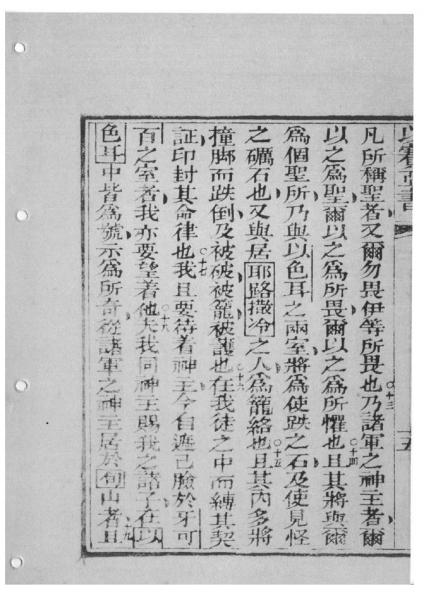 以賽亞書
十五
凡所稱聖者又爾勿畏伊等所畏也○十三乃諸軍之神主者爾
以之為聖爾以之為所畏爾以之為所懼也○十四且其將與爾
為個聖所乃與以色耳之兩室將為使跌之石及使見怪
之礪石也又與居耶路撒冷之人為籠絡也○十五且其內多將
撞脚而跌倒及被破被籠被護也○十六在我徒之中而縛其契
証印封其命律也○十七我且要待着神主今自遮己臉於牙可
百之室者我亦要望着他○十八夫我同神主賜我之諸子在以
色耳中皆為號示為所奇從諸軍之神主居於旬山者○十九且